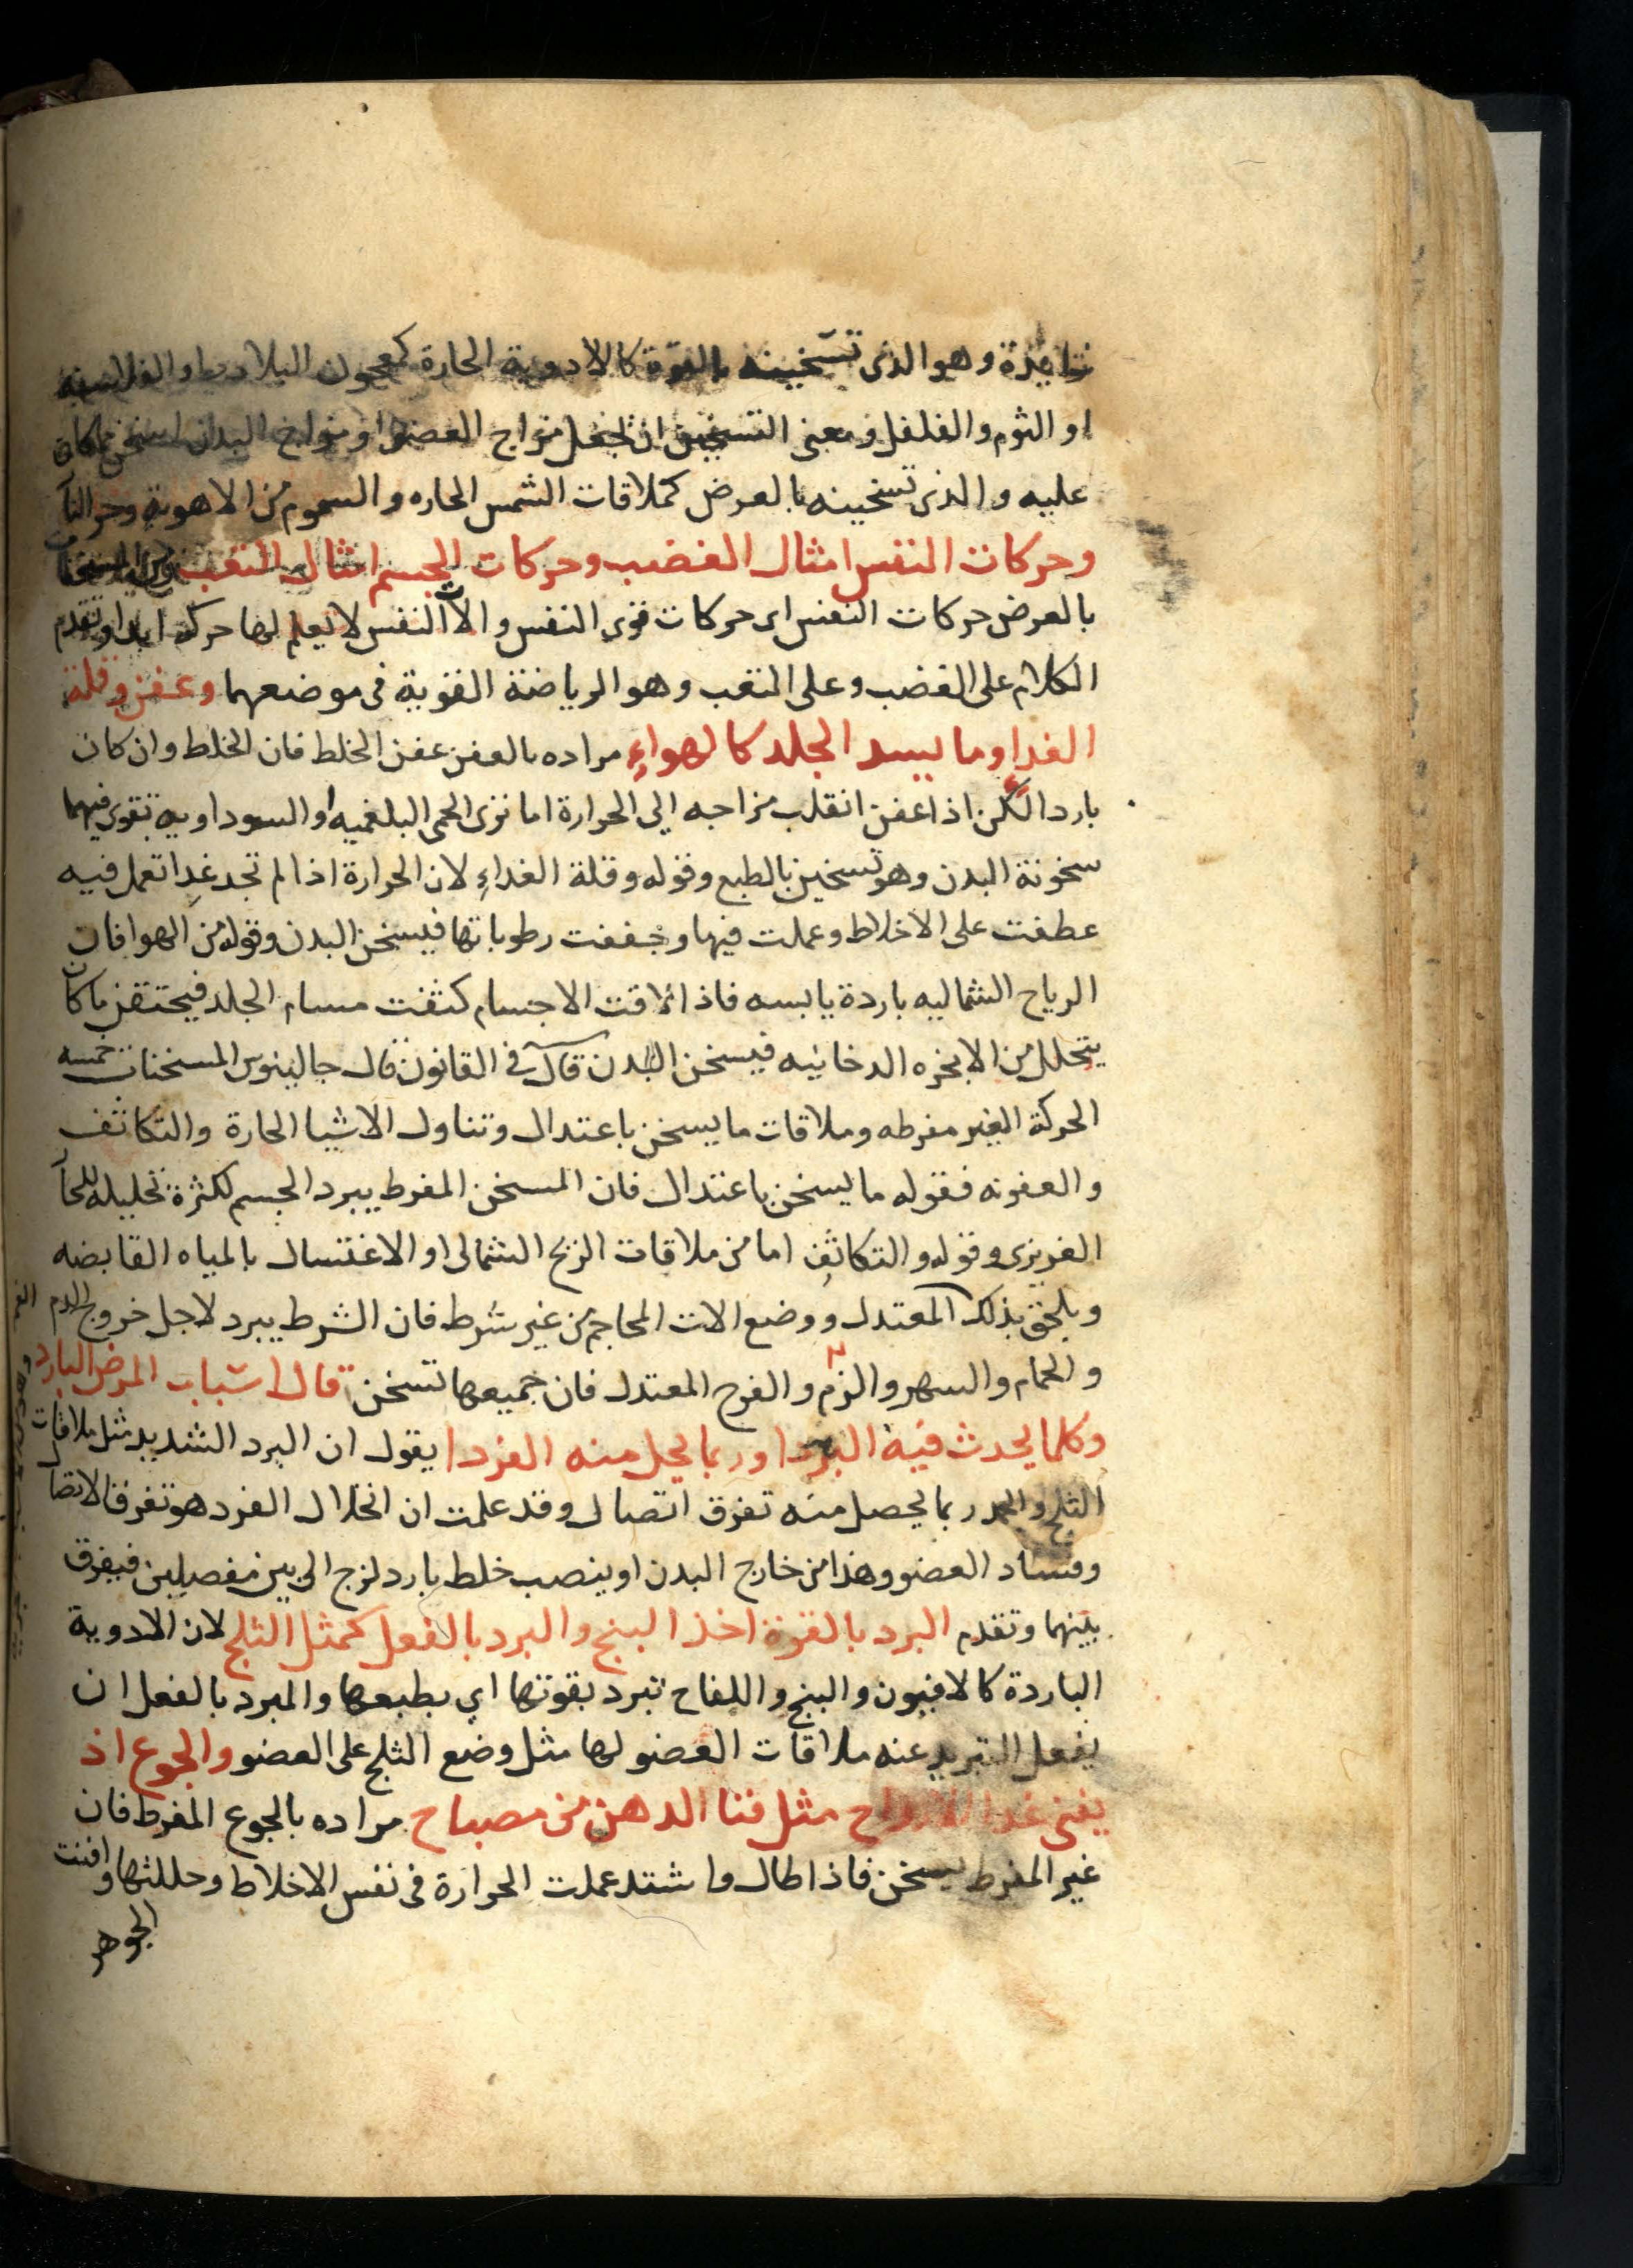 وهو الذى تسخينه بالقوة كالادوية الحارة كمعجون البلادر او الفلاسفه
او الثوم والفلفل ومعنى التسخين ان تجعل مزاج العضو او مزاج البدن اسخن مما كان
عليه والذى تسخينه بالعرض كملاقات الشمس الحاره والسموم من الاهوية وحر النا
وحركات النفس امثال الغضب وحركات الجسم امثال التعب
بالعرض حركات النفس اى حركات قوى النفس والا النفس لا يعلم لها حركة ابدا وتقدم
الكلام على الغضب وعلى التعب وهو الرياضة القوية فى موضعهما وعفن وقلة
الغداء وما يسد الجلد كالهواء مراده بالعفن عفن الخلط فان الخلط وان كان
باردا لكن اذا عفن انقلب مزاجه الى الحرارة اما نرى الحمى البلغميه او السوداويه تقوى فيهما
سخونة البدن وهو تسخين بالطبع وقوله وقلة الغداء لان الحرارة اذا لم تجد غدا تعمل فيه
عطفت على الاخلاط وعملت فيها وجففت رطوباتها فيسخن البدن وقوله من الهوا فان
الرياح الشماليه باردة يابسه فاذا لاقت الاجسام كثفت مسام الجلد فيحتقن ما كان
يتحلل من الابخره الدخانيه فيسخن البدن قال فى القانون قال جالينوس المسخنات خمسه
الحركة الغير مفرطه وملاقات ما يسخن باعتدال وتناول الاشيا الحارة والتكاثف
والعفونه فقوله ما يسخن باعتدال فان المسخن المفرط يبرد الجسم لكثرة تحليله للحا
الغريزى وقوله والتكاثف اما من ملاقات الريح الشمالى او الاغتسال بالمياه القابضه
ويلحق بذلك المعتدل ووضع الات المحاجم من غير شرط فان الشرط يبرد لاجل خروج الدم
والحمام والسهر والفرح المعتدل فان جميعها تسخن قال اسباب المرض البارد
وكلما يحدث فيه البردا وربما يحل منه الفردا يقول ان البرد الشديد مثل ملاقات
الثلج والجمد ربما يحصل منه تفرق اتصال وقد علمت ان انحلال الفرد هو تفرق الاتصا
وفساد العضو وهذا من خارج البدن او ينصب خلط بارد لزج الى بين مفصلين فيفرق
بينهما وتقدم البرد بالقوة اخذ البنج والبرد بالفعل كمثل الثلج لان الادوية
الباردة كالافيون والبنج واللفاح تبرد بقوتها اي بطبعها والمبرد بالفعل ان
يفعل التبريد عنه ملاقات العضو لها مثل وضع الثلج على العضو والجوع اذ
يفنى غدا الارواح مثل فنا الدهن من مصباح مراده بالجوع المفرط فان
غير المفرط يسخن فاذا طال واشتد عملت الحرارة فى نفس الاخلاط وحللتها وافنت
الجوهر